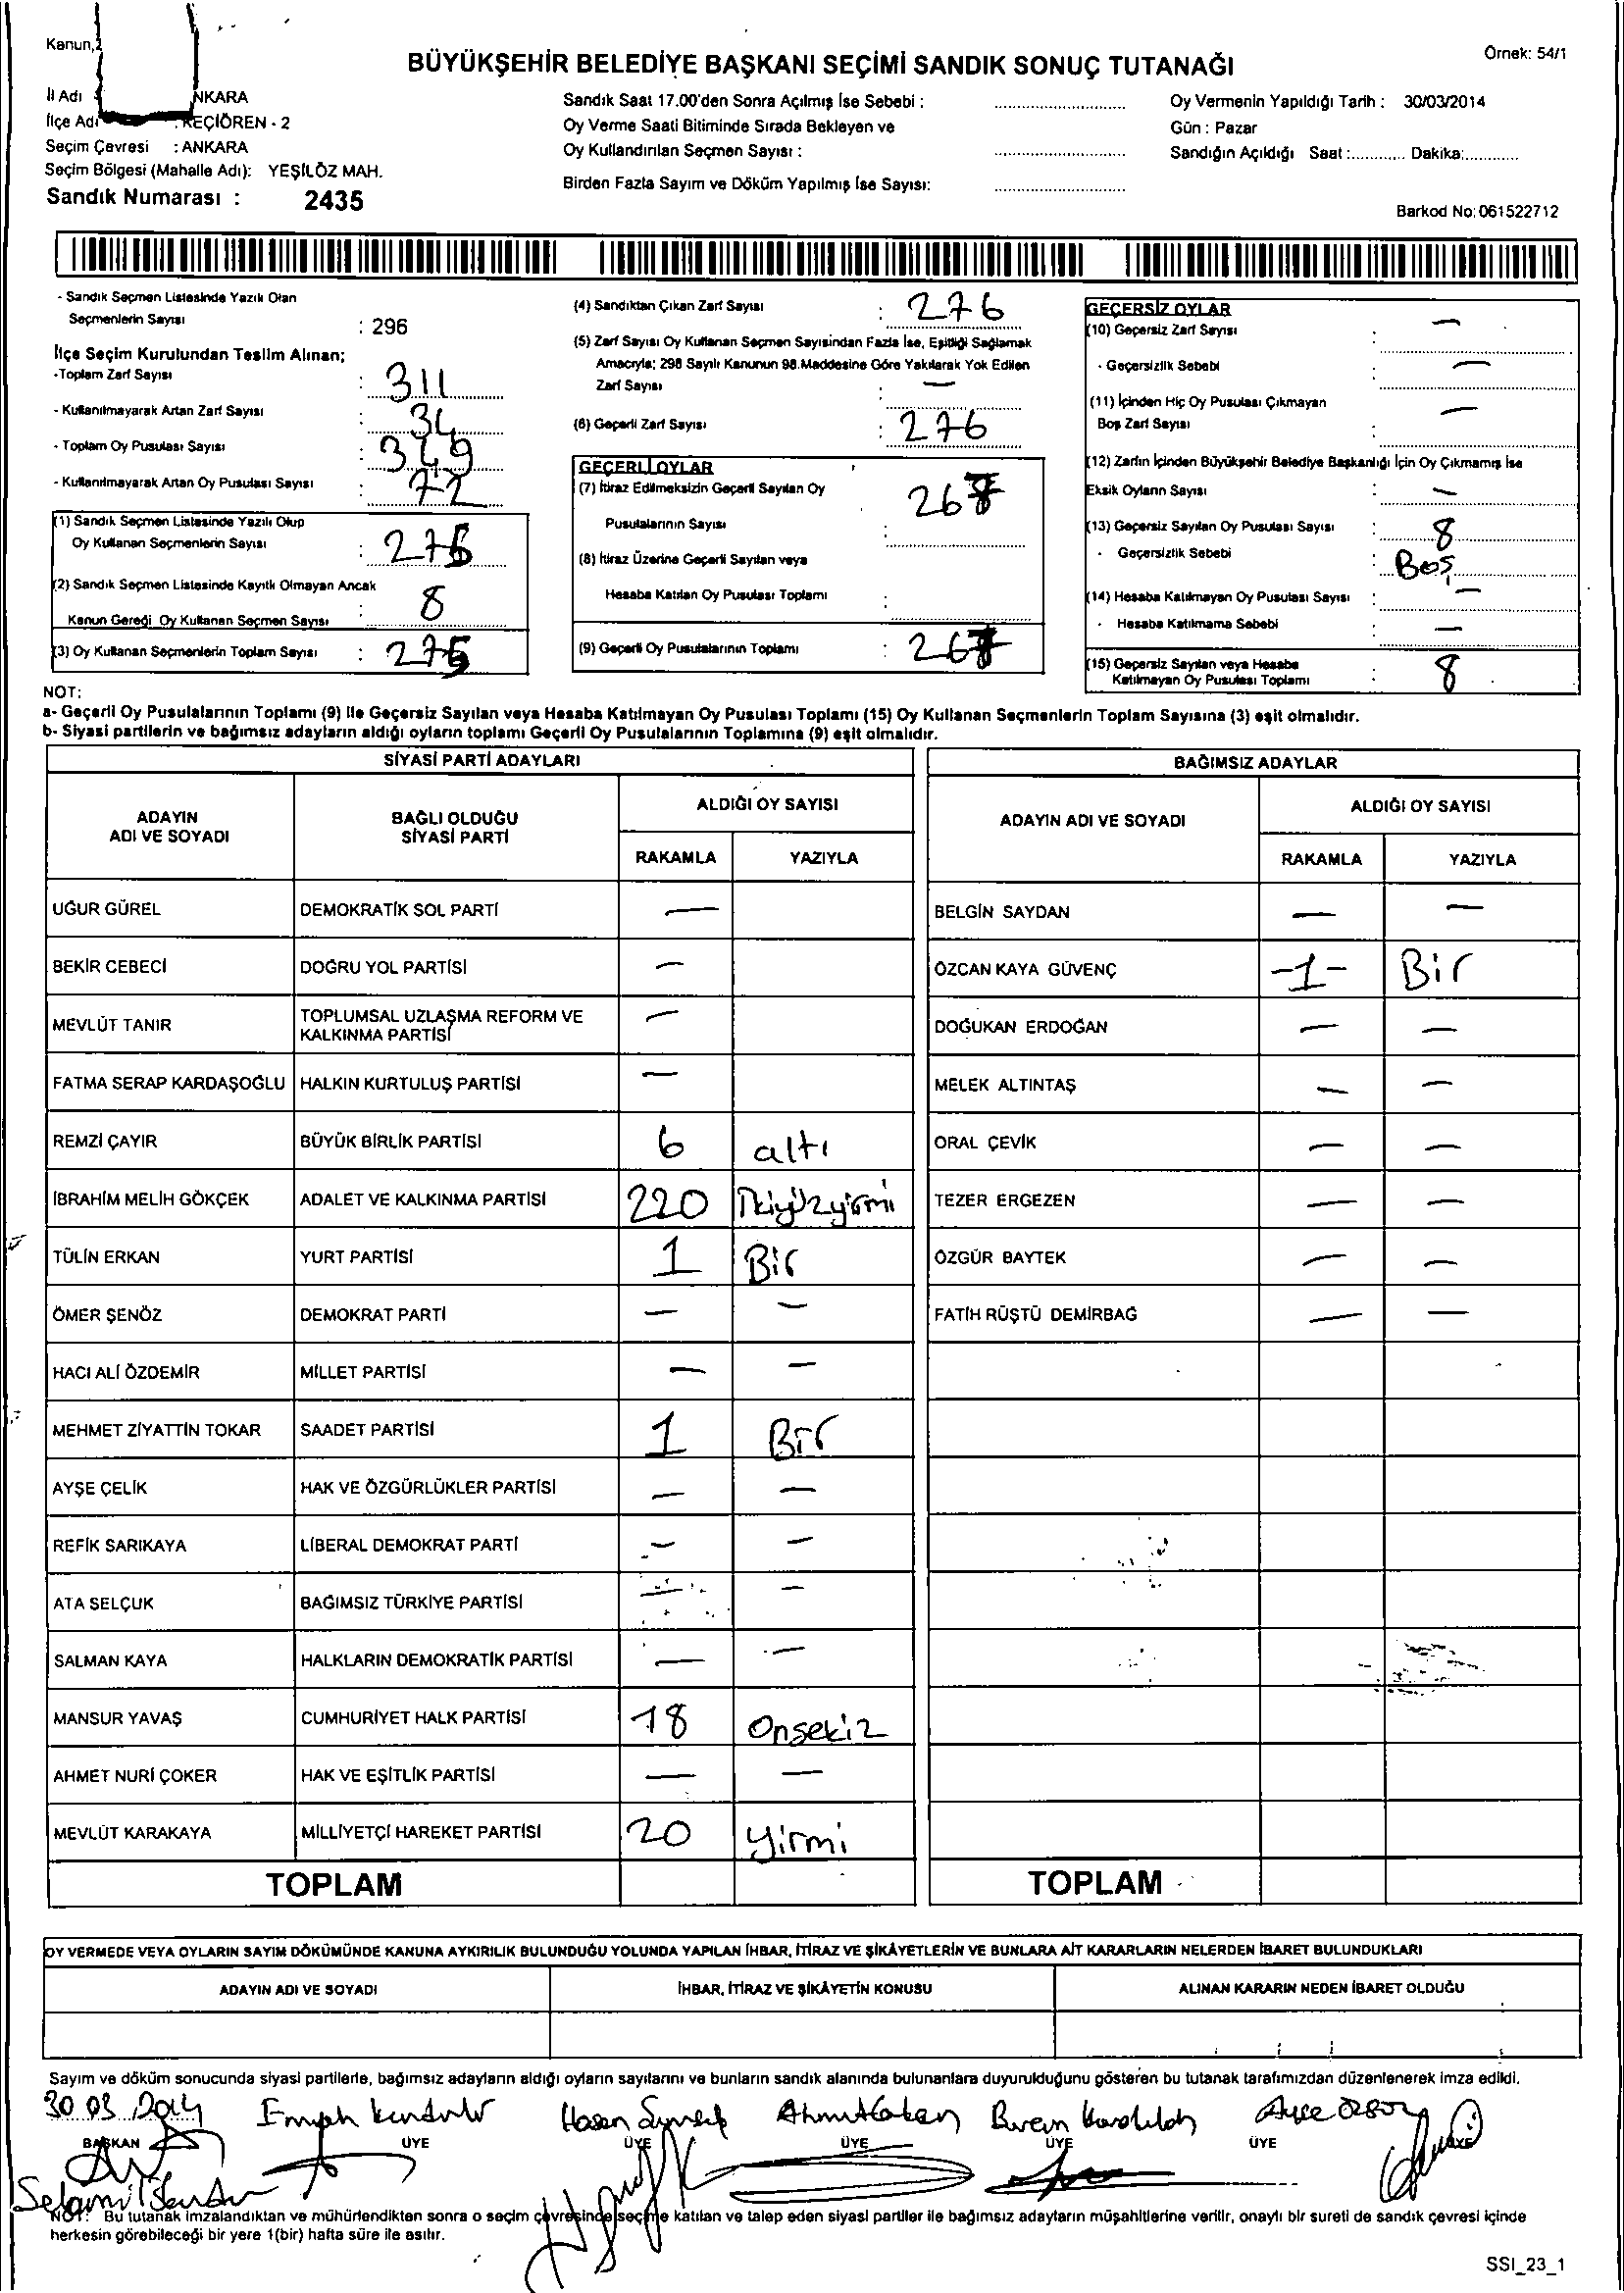 Kanun,
Örnek: 54/1
BÜYÜKŞEHİR BELEDİYE BAŞKANI SEÇİMİ SANDIK SONUÇ TUTANAĞI
İl Adı NKARA
İlçe Adı : KEÇİÖREN - 2
Seçim Çevresi : ANKARA
Seçim Bölgesi (Mahalle Adı): YEŞİLÖZ MAH.
Sandık Numarası : 2435
Sandık Saat 17.00'den Sonra Açılmış İse Sebebi :
Oy Verme Saati Bitiminde Sırada Bekleyen ve
Oy Kullandırılan Seçmen Sayısı :
Birden Fazla Sayım ve Döküm Yapılmış İse Sayısı:
Oy Vermenin Yapıldığı Tarih : 30/03/2014
Gün : Pazar
Sandığın Açıldığı Saat :............ Dakika:............
Barkod No:061522712
- Sandık Seçmen Listesinde Yazılı Olan
Seçmenlerin Sayısı : 296
İlçe Seçim Kurulundan Teslim Alınan;
-Toplam Zarf Sayısı : 311
- Kullanılmayarak Artan Zarf Sayısı : 34
- Toplam Oy Pusulası Sayısı : 349
- Kullanılmayarak Artan Oy Pusulası Sayısı : 72
(1) Sandık Seçmen Listesinde Yazılı Olup
Oy Kullanan Seçmenlerin Sayısı :
(2) Sandık Seçmen Listesinde Kayıtlı Olmayan Ancak
Kanun Gereği Oy Kullanan Seçmen Sayısı : 8
(3) Oy Kullanan Seçmenlerin Toplam Sayısı :
(4) Sandıktan Çıkan Zarf Sayısı : 276
(5) Zarf Sayısı Oy Kullanan Seçmen Sayısından Fazla İse, Eşitliği Sağlamak
Amacıyla; 298 Sayılı Kanunun 98.Maddesine Göre Yakılarak Yok Edilen
Zarf Sayısı : —
(6) Geçerli Zarf Sayısı : 276
GEÇERLİ OYLAR
(7) İtiraz Edilmeksizin Geçerli Sayılan Oy
Pusulalarının Sayısı :
(8) İtiraz Üzerine Geçerli Sayılan veya
Hesaba Katılan Oy Pusulası Toplamı :
(9) Geçerli Oy Pusulalarının Toplamı :
GEÇERSİZ OYLAR
(10) Geçersiz Zarf Sayısı : —
- Geçersizlik Sebebi : —
(11) İçinden Hiç Oy Pusulası Çıkmayan
Boş Zarf Sayısı : —
(12) Zarfın İçinden Büyükşehir Belediye Başkanlığı İçin Oy Çıkmamış İse
Eksik Oyların Sayısı : —
(13) Geçersiz Sayılan Oy Pusulası Sayısı : 8
- Geçersizlik Sebebi : Boş
(14) Hesaba Katılmayan Oy Pusulası Sayısı : —
- Hesaba Katılmama Sebebi : —
(15) Geçersiz Sayılan veya Hesaba
Katılmayan Oy Pusulası Toplamı : 8
NOT:
a- Geçerli Oy Pusulalarının Toplamı (9) İle Geçersiz Sayılan veya Hesaba Katılmayan Oy Pusulası Toplamı (15) Oy Kullanan Seçmenlerin Toplam Sayısına (3) eşit olmalıdır.
b- Siyasi partilerin ve bağımsız adayların aldığı oyların toplamı Geçerli Oy Pusulalarının Toplamına (9) eşit olmalıdır.
SİYASİ PARTİ ADAYLARI
ADAYIN ADI VE SOYADI
BAĞLI OLDUĞU SİYASİ PARTİ
ALDIĞI OY SAYISI
RAKAMLA YAZIYLA
UĞUR GÜREL DEMOKRATİK SOL PARTİ —
BEKİR CEBECİ DOĞRU YOL PARTİSİ —
MEVLÜT TANIR TOPLUMSAL UZLAŞMA REFORM VE KALKINMA PARTİSİ —
FATMA SERAP KARDAŞOĞLU HALKIN KURTULUŞ PARTİSİ —
REMZİ ÇAYIR BÜYÜK BİRLİK PARTİSİ 6 altı
İBRAHİM MELİH GÖKÇEK ADALET VE KALKINMA PARTİSİ 220 İkiyüzyirmi
TÜLİN ERKAN YURT PARTİSİ 1 Bir
ÖMER ŞENÖZ DEMOKRAT PARTİ — —
HACI ALİ ÖZDEMİR MİLLET PARTİSİ — —
MEHMET ZİYATTİN TOKAR SAADET PARTİSİ 1 Bir
AYŞE ÇELİK HAK VE ÖZGÜRLÜKLER PARTİSİ — —
REFİK SARIKAYA LİBERAL DEMOKRAT PARTİ — —
ATA SELÇUK BAĞIMSIZ TÜRKİYE PARTİSİ — —
SALMAN KAYA HALKLARIN DEMOKRATİK PARTİSİ — —
MANSUR YAVAŞ CUMHURİYET HALK PARTİSİ 18 Onsekiz
AHMET NURİ ÇOKER HAK VE EŞİTLİK PARTİSİ — —
MEVLÜT KARAKAYA MİLLİYETÇİ HAREKET PARTİSİ 20 Yirmi
TOPLAM
BAĞIMSIZ ADAYLAR
ADAYIN ADI VE SOYADI
ALDIĞI OY SAYISI
RAKAMLA YAZIYLA
BELGİN SAYDAN — —
ÖZCAN KAYA GÜVENÇ -1- Bir
DOĞUKAN ERDOĞAN — —
MELEK ALTINTAŞ — —
ORAL ÇEVİK — —
TEZER ERGEZEN — —
ÖZGÜR BAYTEK — —
FATİH RÜŞTÜ DEMİRBAĞ — —
TOPLAM
OY VERMEDE VEYA OYLARIN SAYIM DÖKÜMÜNDE KANUNA AYKIRILIK BULUNDUĞU YOLUNDA YAPILAN İHBAR, İTİRAZ VE ŞİKÂYETLERİN VE BUNLARA AİT KARARLARIN NELERDEN İBARET BULUNDUKLARI
ADAYIN ADI VE SOYADI
İHBAR, İTİRAZ VE ŞİKÂYETİN KONUSU
ALINAN KARARIN NEDEN İBARET OLDUĞU
Sayım ve döküm sonucunda siyasi partilerle, bağımsız adayların aldığı oyların sayılarını ve bunların sandık alanında bulunanlara duyurulduğunu gösteren bu tutanak tarafımızdan düzenlenerek imza edildi.
30 03 2014
BAŞKAN ÜYE ÜYE ÜYE ÜYE ÜYE ÜYE
NOT: Bu tutanak imzalandıktan ve mühürlendikten sonra o seçim çevresinde seçime katılan ve talep eden siyasi partiler ile bağımsız adayların müşahitlerine verilir, onaylı bir sureti de sandık çevresi içinde
herkesin görebileceği bir yere 1(bir) hafta süre ile asılır.
SSI_23_1